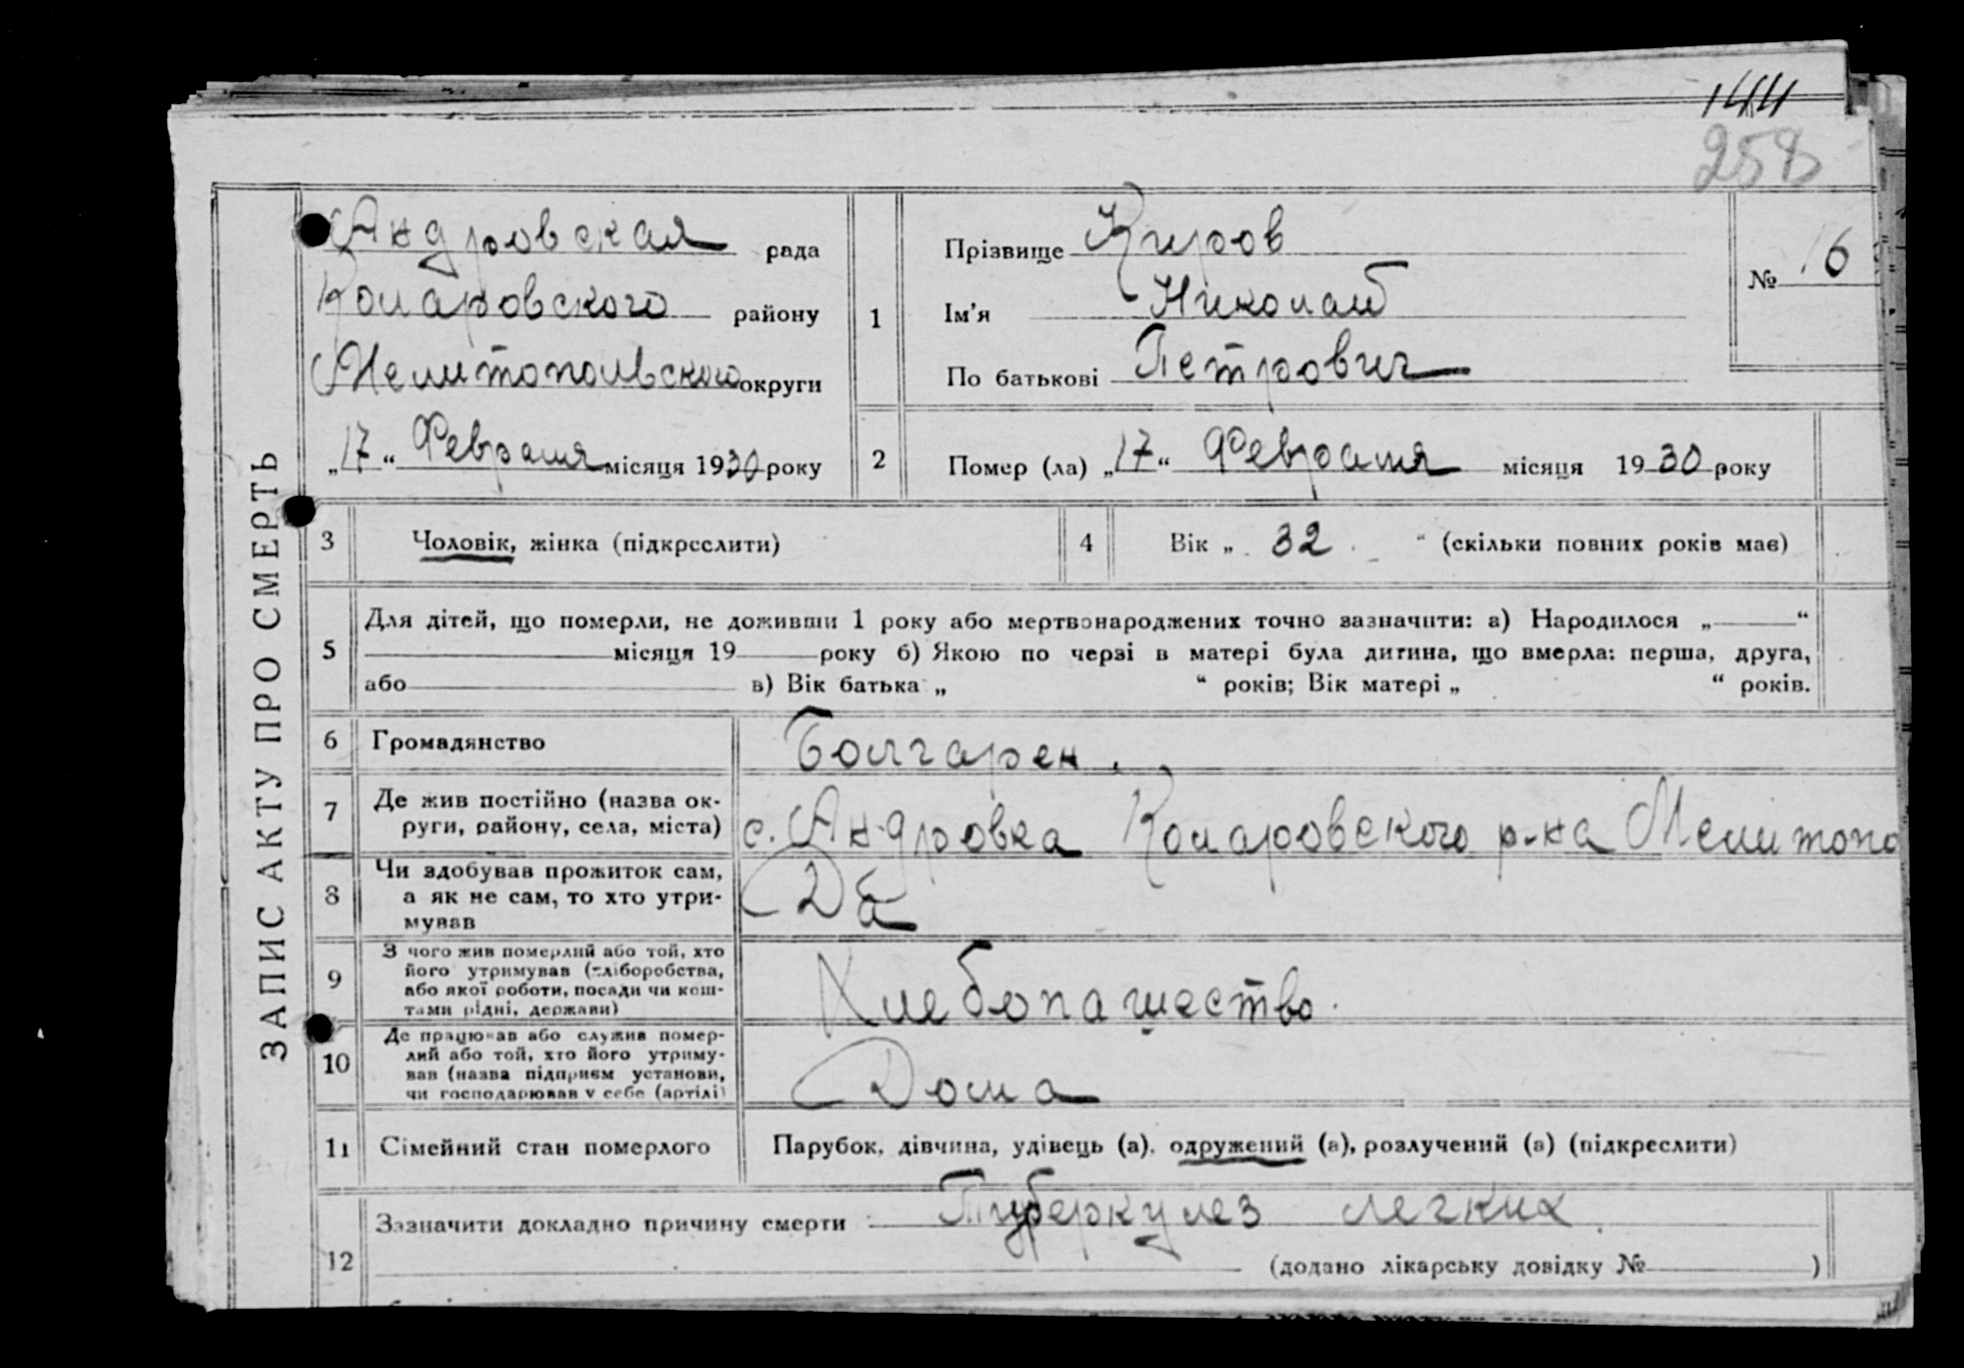 144
258
ЗАПИС АКТУ ПРО СМЕРТЬ
Андровская рада
Коларовского району
Мелитопольского округи
„17“ Февраля місяця 1930 року
1
Прізвище Киров
Ім’я Николай
По батькові Петрович
№ 16
2
Помер (ла) „17“ Февраля місяця 1930 року
3 Чоловік, жінка (підкреслити)
4 Вік „ 32 “ (скільки повних років має)
5
Для дітей, що померли, не доживши 1 року або мертвонароджених точно зазначити: а) Народилося „ “
місяця 19 року б) Якою по черзі в матері була дитина, що вмерла: перша, друга,
або в) Вік батька „ “ років; Вік матері „ “ років.
6 Громадянство Болгарен.
7 Де жив постійно (назва ок-
руги, району, села, міста) с. Андровка Коларовского р-на Мелитопо
8 Чи здобував прожиток сам,
а як не сам, то хто утри-
мував Да
9 З чого жив померлий або той, хто
його утримував (хліборобства,
або якої роботи, посади чи кош-
тами рідні, держави) Хлебопашество.
10 Де працював або служив помер-
лий або той, хто його утриму-
вав (назва підприєм установи,
чи господарював у себе (артілі) Дома
11 Сімейний стан померлого Парубок, дівчина, удівець (а), одружений (а), розлучений (а) (підкреслити)
12
Зазначити докладно причину смерти Туберкулез легких
(додано лікарську довідку № )